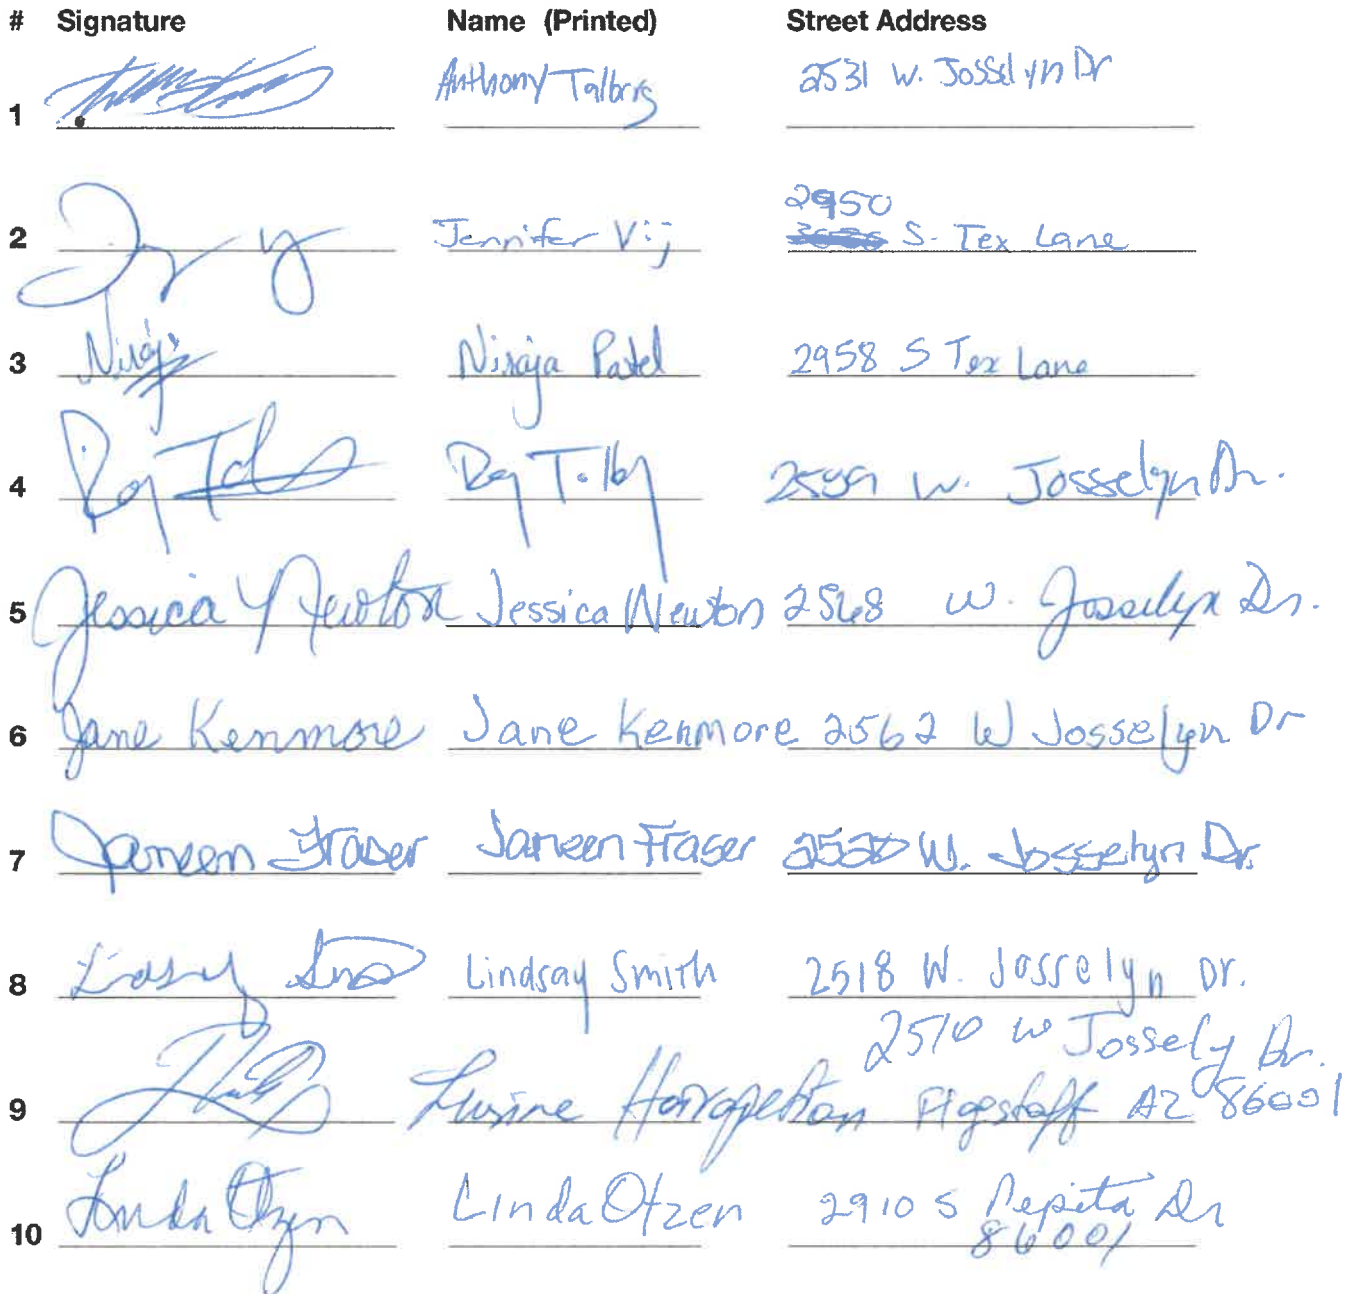 # Signature Name (Printed) Street Address
1 Anthony 2531 W. Josselyn Dr
2 Jennifer Vij 2950 S. Tex Lane
3 Niraja Patel 2958 S Tex Lane
4 W. Josselyn Dr.
5 Jessica Newton Jessica Newton 2568 W. Josselyn Dr.
6 Jane Kenmore Jane Kenmore 2562 W Josselyn Dr
7 Janeen Fraser Janeen Fraser W. Josselyn Dr.
8 Lindsay Smith 2518 W. Josselyn Dr.
2510 W Josselyn Dr.
9 Lusine Hairapetian Flagstaff AZ 86001
10 Linda Otzen Linda Otzen 2910 S Pepita Dr
86001